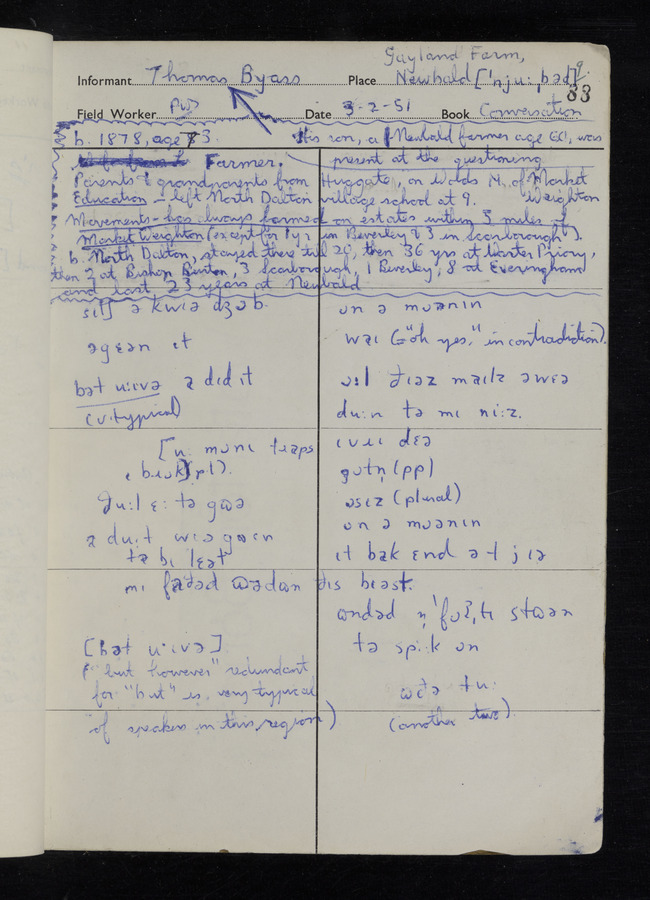 Gayland Farm,
Informant Thomas Byass Place Newbald [ˈnjuːbəd] 9.
83
Field Worker PW Date 3-2-51 Book Conversation
b. 1878, age 73. His son, a Newbald farmer age 60, was
Farmer. present at the questioning
Parents & grandparents from Huggate, on Wolds N. of Market Weighton
Education – left North Dalton village school at 9.
Movements – has always farmed on estates within 3 miles of
Market Weighton (except for 1 y. in Beverley & 3 in Scarborough).
b. North Dalton, stayed there till 20, then 36 yrs at Warter Priory,
then 2 at Bishop Burton, 3 Scarborough, 1 Beverley, 8 at Everingham
and last 23 years at Newbald
sɪtʃ ə kwɪə dʒɔb.
əgɛən ɪt
bət uːɪvə a dɪd ɪt
(v. typical)
ɡuːl ɛː tə gøə
tə bɪ lɛət
[bət uːɪvə]
("but however" redundant
for "but" is very typical
of speakers in this region)
ɒn ə mɔənɪn
waɪ (="oh yes," in contradiction).
ɔːl ðɪəz maɪlz əwɛə
duːn tə mɪ niːz.
ɪvɪɪ dɛə
gɒtn̩ (pp)
ɔsɪz (plural)
ɒn ə mɔənɪn
ɪt bak ɛnd ət jɪə
tə spiːk ɒn
(another two)